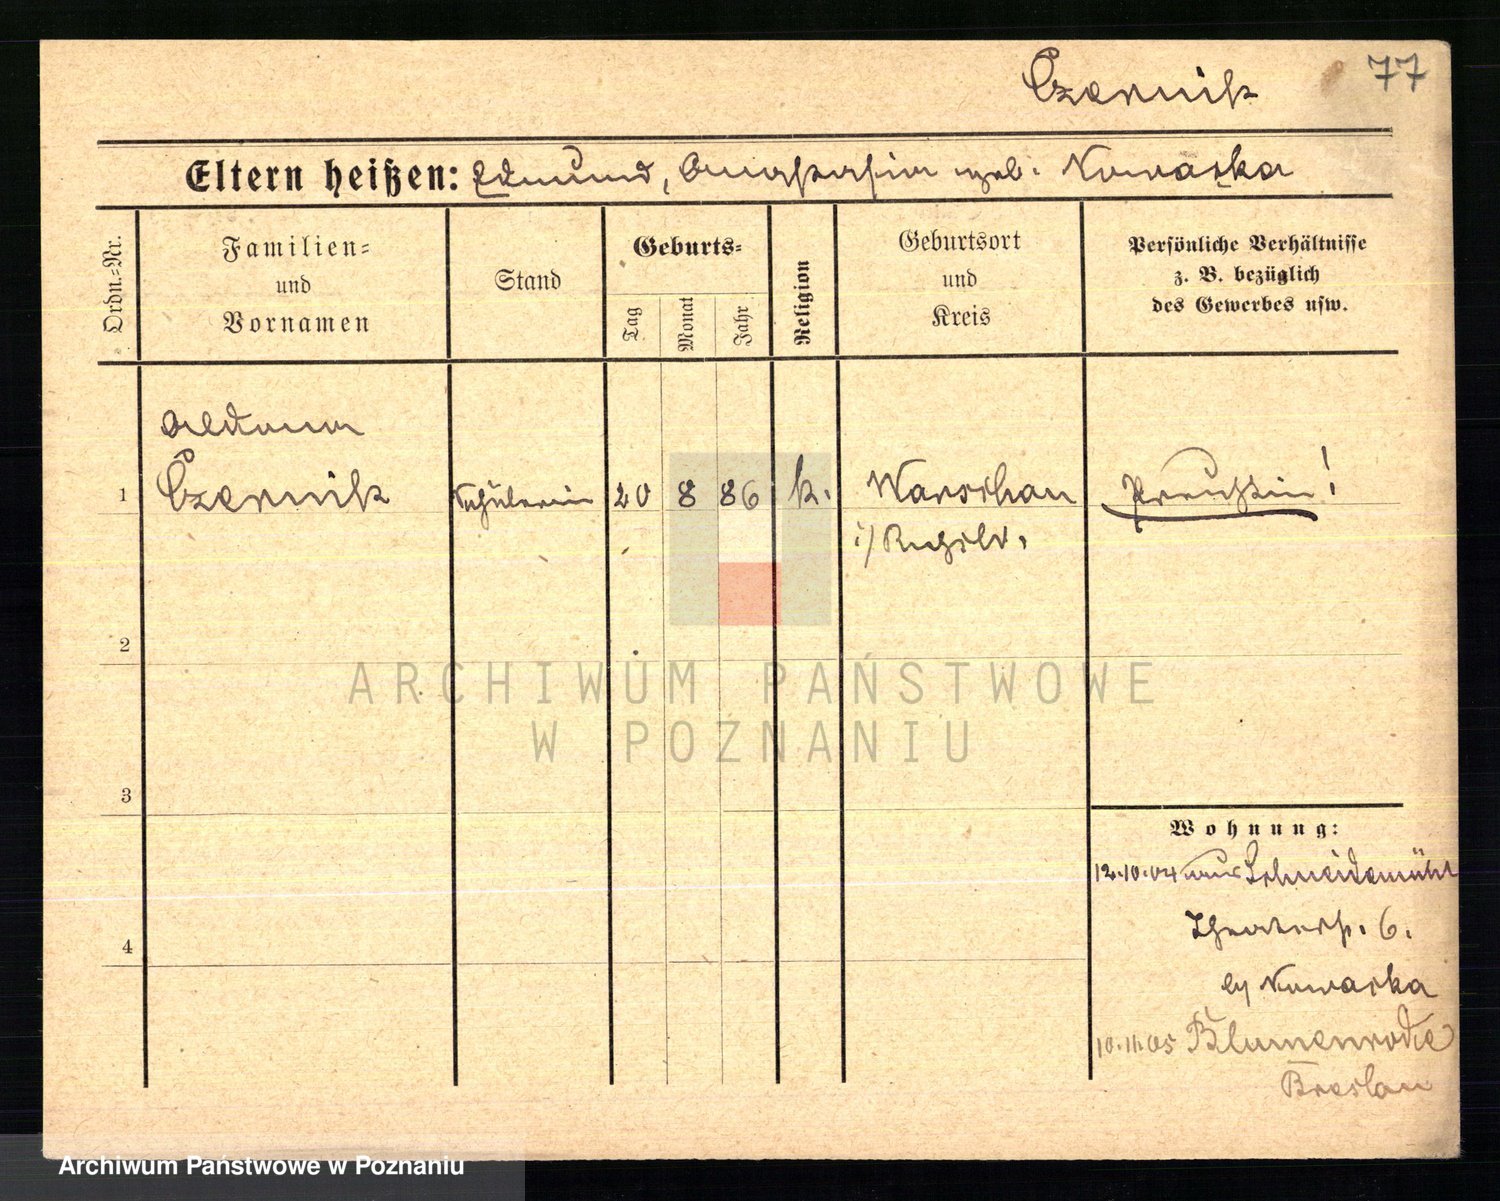 Czernik 77
Eltern heißen: Edmund, Anastasia geb. Nowacka
Ordn.=Nr.
Familien=
und
Vornamen
Stand
Geburts=
Tag
Monat
Jahr
Religion
Geburtsort
und
Kreis
Persönliche Verhältnisse
z. B. bezüglich
des Gewerbes usw.
1 Czernik Schülerin 20 8 86 k. Warschau Preußin!
i/ Rußld.
2
3
4
Wohnung:
12.10.04 aus Schneidemühl
Theaterst. 6.
by Nowacka
10.11.05
Breslau
ARCHIWUM PAŃSTWOWE
W POZNANIU
Archiwum Państwowe w Poznaniu